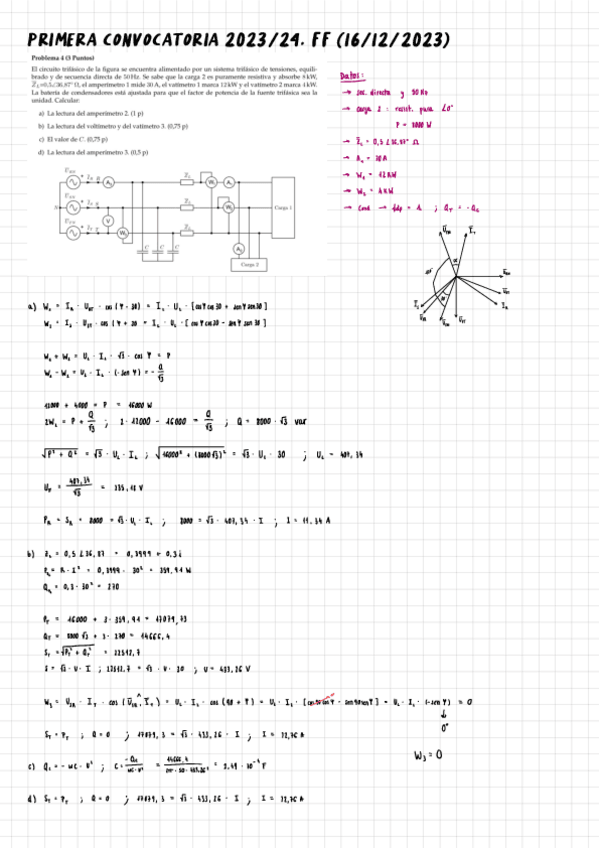 PRIMERA CONVOCATORIA 2023/24. FF (16/12/2023)
Problema 4 (3 Puntos)
El circuito trifásico de la figura se encuentra alimentado por un sistema trifásico de tensiones, equili-
brado y de secuencia directa de 50 Hz. Se sabe que la carga 2 es puramente resistiva y absorbe 8 kW,
Z_L=0,5∠36,87° Ω, el amperímetro 1 mide 30 A, el vatímetro 1 marca 12 kW y el vatímetro 2 marca 4 kW.
La batería de condensadores está ajustada para que el factor de potencia de la fuente trifásica sea la
unidad. Calcular:
a) La lectura del amperímetro 2. (1 p)
b) La lectura del voltímetro y del vatímetro 3. (0,75 p)
c) El valor de C. (0,75 p)
d) La lectura del amperímetro 3. (0,5 p)
Datos:
→ sec. directa y 50 Hz
→ carga 2 : resist. pura ∠0°
P = 8000 W
→ Z_L = 0,5 ∠36,87° Ω
→ A₁ = 30A
→ W₁ = 12KW
→ W₂ = 4KW
→ Cond → fdp = 1 ; Q_T = -Q_C
Carga 1
Carga 2
C C C
a)
W₁ + W₂ = U_L · I_L · √3 · cos φ = P
W₁ - W₂ = U_L · I_L · (-sen φ) = - Q/√3
12000 + 4000 = P = 16000 W
2W₁ = P + Q/√3 ; 2 · 12000 - 16000 = Q/√3 ; Q = 8000 · √3 var
√(P² + Q²) = √3 · U_L · I_L ; √(16000² + (8000√3)²) = √3 · U_L · 30 ; U_L = 407,34
U_F = 407,34/√3 = 235,18 V
P_R = S_R = 8000 = √3 · U_L · I_L ; 8000 = √3 · 407,34 · I ; I = 11,34 A
b) Z_L = 0,5 ∠36,87 = 0,3999 + 0,3i
P_L = R · I² = 0,3999 · 30² = 359,91 W
Q_L = 0,3 · 30² = 270
P_T = 16000 + 3 · 359,91 = 17079,73
Q_T = 8000 √3 + 3 · 270 = 14666,4
S_T = √(P_T² + Q_T²) = 22512,7
S = √3 · U · I ; 22512,7 = √3 · U · 30 ; U = 433,26 V
S_T = P_T ; Q = 0 ; 17079,3 = √3 · 433,26 · I ; I = 22,76 A
0°
W₃ = 0
c)
d) S_T = P_T ; Q = 0 ; 17079,3 = √3 · 433,26 · I ; I = 22,76 A